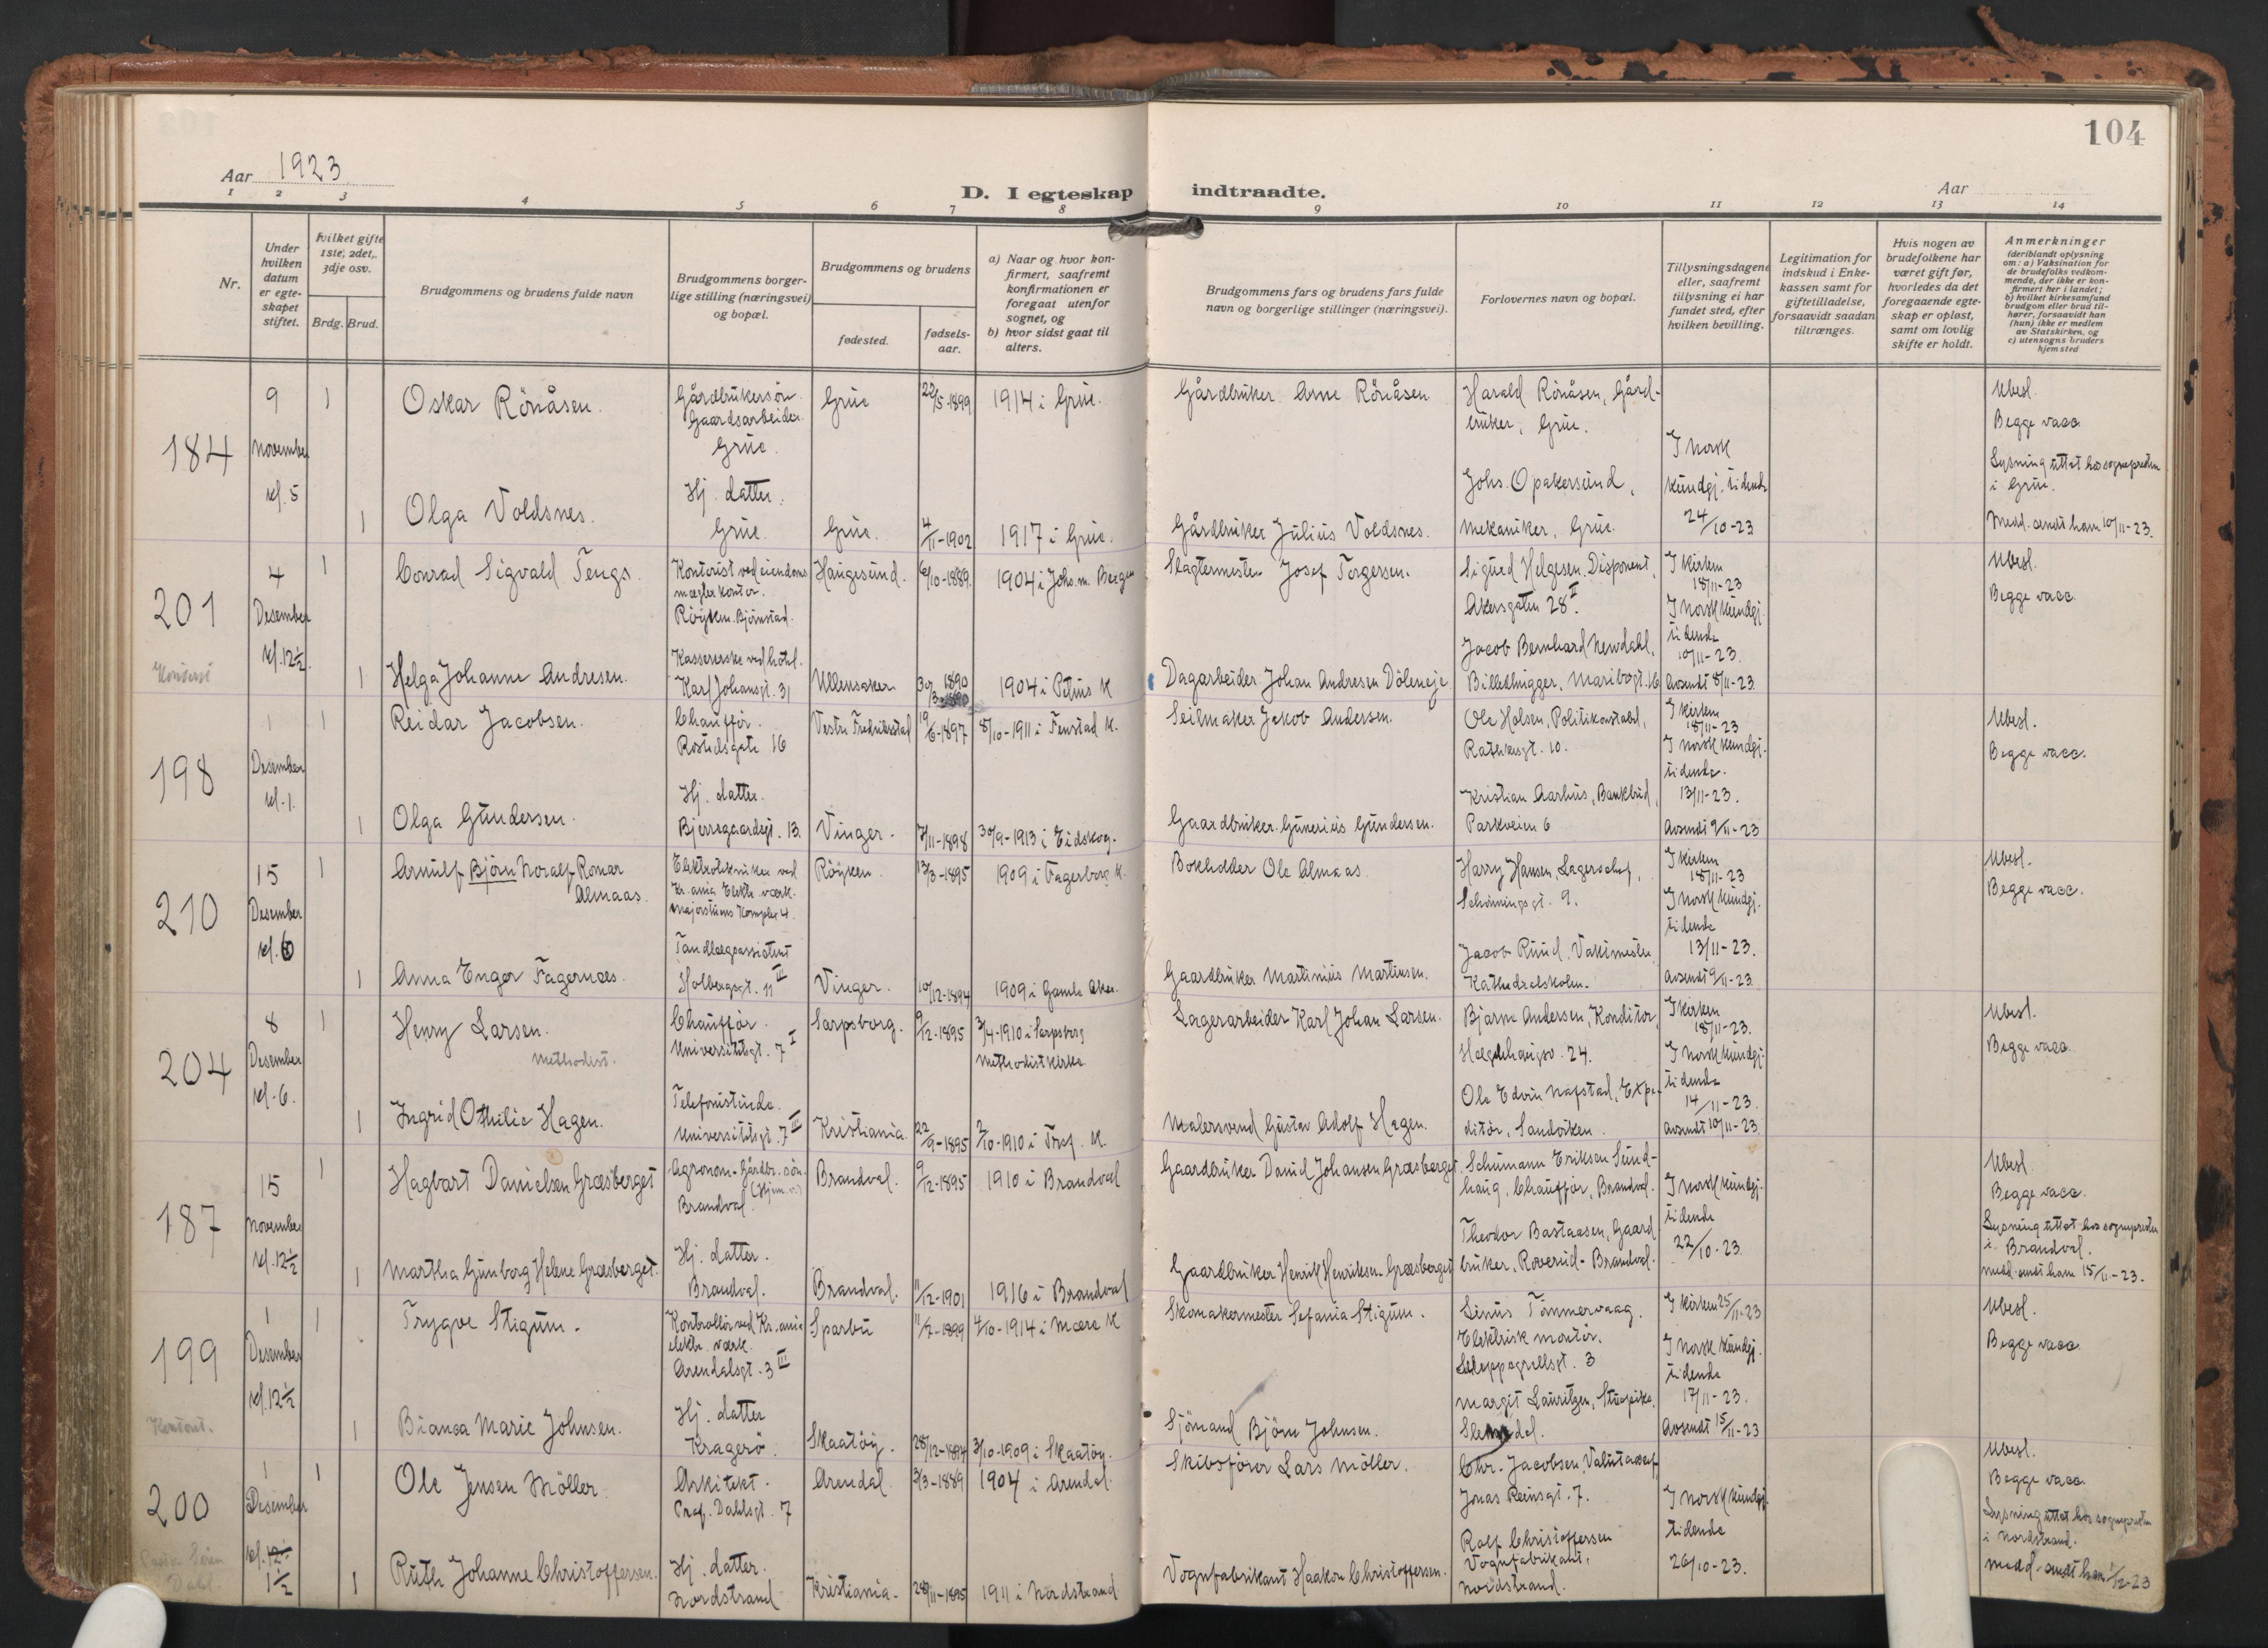 104
Aar 1923
D. I egteskap indtraadte.
Aar
1 2 3 4 5 6 7 8 9 10 11 12 13 14
Nr.
Under hvilken datum er egteskapet stiftet.
Hvilket gifte 1ste, 2det, 3dje osv.
Brdg. Brud.
Brudgommens og brudens fulde navn
Brudgommens borgerlige stilling (næringsvei) og bopæl.
Brudgommens og brudens
fødested.
fødselsaar.
a) Naar og hvor konfirmert, saafremt konfirmationen er foregaat utenfor sognet, og
b) hvor sidst gaat til alters.
Brudgommens fars og brudens fars fulde navn og borgerlige stillinger (næringsvei).
Forlovernes navn og bopæl.
Tillysningsdagene eller, saafremt tillysning ei har fundet sted, efter hvilken bevilling.
Legitimation for indskud i Enkekassen samt for giftetilladelse, forsaavidt saadan tiltrænges.
Hvis nogen av brudefolkene har været gift før, hvorledes da det foregaaende egteskap er opløst, samt om lovlig skifte er holdt.
Anmerkninger (deriblandt oplysning om: a) Vaksination for de brudefolks vedkommende, der ikke er konfirmert her i landet; b) hvilket kirkesamfund brudgom eller brud tilhører, forsaavidt han (hun) ikke er medlem av Statskirken, og c) utensogns bruders hjemsted
184
9 November kl. 5
1
Oskar Rönåsen.
Gårdbrukersön. Gaardsarbeider. Grue.
Grue
22/5-1899
1914 i Grue.
Gårdbruker Arne Rönåsen
Harald Rönåsen, Gårdbruker, Grue.
I Norsk kundgj. tidende 24/10-23
Ubesl.
Begge vacc.
Lysning uttat hos sognepresten i Grue.
Medd. sendt ham 10/11-23.
1
Olga Voldsnes.
Hj. datter. Grue.
Grue.
4/11-1902
1917 i Grue.
Gårdbruker Julius Voldsnes.
Johs. Opakersund, Mekaniker, Grue.
201
4 Desember kl. 12½.
1
Conrad Sigvald Tengs.
Kontorist ved eiendomsmægler kontor. Röyken. Björnstad.
Haugesund.
6/10-1889.
1904 i Johs. m. Bergen
Slagtermester Josef Torgersen.
Sigurd Helgesen. Disponent, Akersgaten 28 II.
I kirken 18/11-23
I Norsk kundgj. tidende 10/11-23.
Avsendt 8/11-23.
Ubesl.
Begge vacc.
1
Helga Johanne Andresen.
Kassererske ved hotel. Karl Johansgt. 31
Ullensaker
30/3 1890
1904 i Petrus K
Dagarbeider Johan Andresen Döleneje
Jacob Bernhard Newdahl, Billethugger, Maribogt. 16
198
1 Desember kl. 1.
1
Reidar Jacobsen.
Chaufför. Rostedsgate 16
Vestre Fredrikstad
19/6-1897
8/10-1911 i Fenstad K.
Seilmaker Jakob Andersen.
Ole Holsen, Politikonstabel, Rathkesgt. 10.
I kirken 18/11-23
I Norsk kundgj. tidende. 13/11-23.
Avsendt 9/11-23
Ubesl.
Begge vacc.
1
Olga Gundersen.
Hj. datter. Bjerregaardsgt. 13.
Vinger.
7/11-1898
30/9-1913 i Eidskog.
Gaardbruker Gunerius Gundersen.
Kristian Aarhus, Bankbud, Parkveien 6
210
15 Desember kl. 6
1
Arnulf Björn Noralf Ronar Almaas.
Elektrotekniker ved Kr.ania Elektr. værk. Majorstuens Komplex 4.
Röyken.
13/3-1895
1909 i Fagerborg K.
Bokholder Ole Almaas.
Harry Hansen, Lagerchef, Schöningsgt. 9.
I kirken 18/11-23
I Norsk kundgj. tidende 13/11-23.
Avsendt 9/11-23.
Ubesl.
Begge vacc.
1
Anna Enger Fagernæs.
Tandlægeassistent Holbergsgt. 11 III
Vinger.
10/12-1894
1909 i Gamle Aker.
Gaardbruker Martinius Martinsen.
Jacob Ruud, Vaktmester Kathedralskolen.
204
8 Desember kl. 6.
1
Henry Larsen.
Methodist.
Chaufför. Universitetsgt. 7 I
Sarpsborg.
9/12-1895
3/4-1910 i Sarpsborg Methodistkirke.
Lagerarbeider Karl Johan Larsen.
Bjarne Andersen, Konditor, Hægdehaugsv. 24.
I kirken 18/11-23.
I Norsk kundgj. tidende 14/11-23.
Avsendt 10/11-23.
Ubesl.
Begge vacc.
1
Ingrid Othilie Hagen.
Telefonistinde. Universitetsgt. 7 III
Kristiania.
22/9-1895
2/10-1910 i Tref. K.
Malersvend Gustav Adolf Hagen.
Ole Edvin Nafstad, Expeditör, Sandviken.
187
15 November kl. 12½
1
Hagbart Danielsen Græsberget
Agronom. Gårdbr. sön. Brandval.
Brandval.
9/12-1895
1910 i Brandval
Gaardbruker Daniel Johansen Græsberget.
Schumann Eriksen Sundhaug, Chaufför, Brandval.
I Norsk kundgj. tidende 22/10-23.
Ubesl.
Begge vacc.
Lysning uttat hos sognepresten i Brandval.
Medd. sendt ham 15/11-23.
1
Martha Gunborg Helene Græsberget.
Hj. datter. Brandval.
Brandval.
11/12-1901
1916 i Brandval
Gaardbruker Henrik Henriksen Græsberget
Theodor Bastaasen, Gaardbruker, Roverud - Brandval.
199
1 Desember kl. 12½
1
Trygve Stigum.
Kontrollör ved Kr.ania elektr. værk. Arendalsgt. 3 III
Sparbu
11/7-1899
4/10-1914 i Mære K
Skomakermester Sefania Stigum.
Linus Tömmervaag. Elektrisk montör. Schleppegrellsgt. 3
I kirken 25/11-23
I Norsk kundgj. tidende 17/11-23.
Avsendt 15/11-23
Ubesl.
Begge vacc.
1
Bianca Marie Johnsen.
Hj. datter Kragerö.
Skaatöy.
28/12-1894
3/10-1909 i Skaatöy.
Sjömand Björn Johnsen.
Margit Lauritzen, Stuepike, Slemdal.
200
1 Desember kl. 1½
1
Ole Jensen Möller.
Arkitekt. Prof. Dahlsgt. 7
Arendal.
3/3-1889
1904 i Arendal.
Skibsförer Lars Möller.
Chr. Jacobsen, Jonas Reinsgt. 7.
I Norsk kundgj. tidende 26/10-23.
Ubesl.
Begge vacc.
Lysning uttat hos sognepresten i Nordstrand.
Medd. sendt ham 1/12-23
1
Ruth Johanne Christoffersen.
Hj. datter. Nordstrand
Kristiania.
28/11-1895
1911 i Nordstrand
Vognfabrikant Haakon Christoffersen.
Rolf Christoffersen Vognfabrikant, Nordstrand.